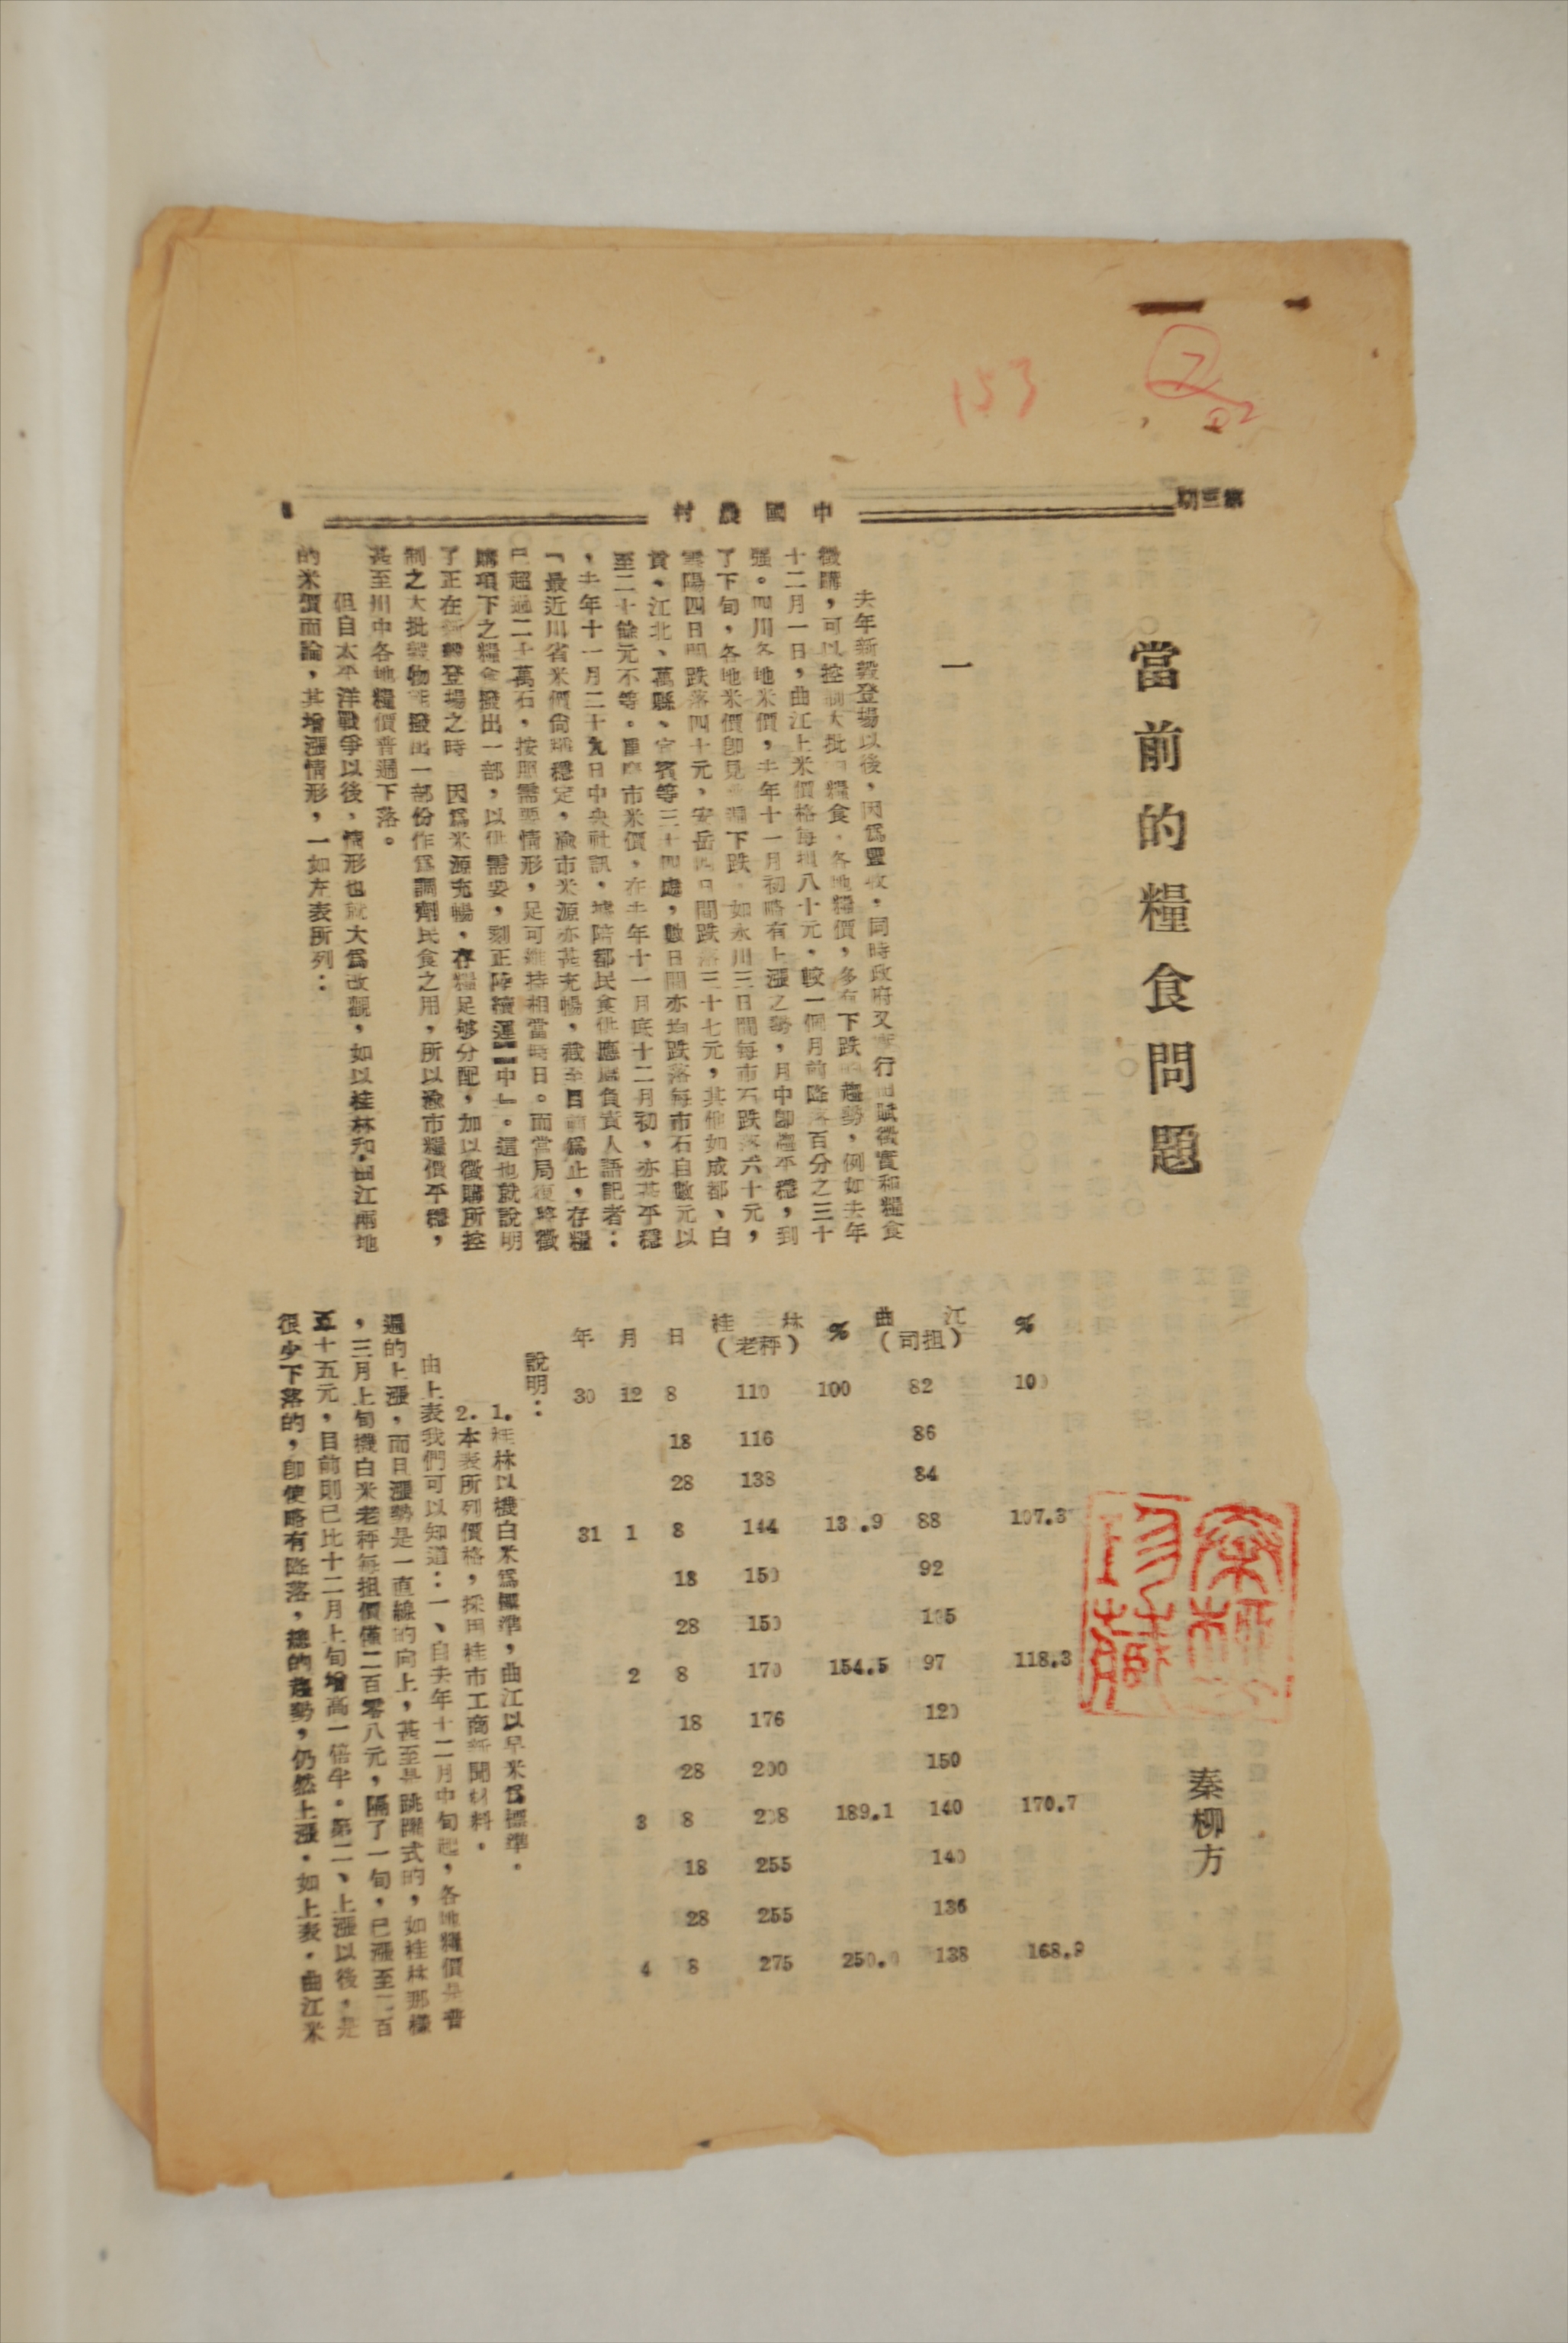 153
第三期
中國農村
當前的糧食問題
秦柳方
一
去年新穀登場以後，因爲豐收，同時政府又實行田賦徵實和糧食
徵購，可以控制大批糧食，各地糧價，多有下跌的趨勢，例如去年
十二月一日，曲江上米價格每担八十元，較一個月前降落百分之三十
强。四川各地米價，去年十一月初略有上漲之勢，月中即趨平穩，到
了下旬，各地米價即見普遍下跌，如永川三日間每市石跌落六十元，
雲陽四日間跌落四十元，安岳四日間跌落三十七元，其他如成都、白
貢、江北、萬縣、宜賓等三十四處，數日間亦均跌落每市石自數元以
至二十餘元不等。重慶市米價，在去年十一月底十二月初，亦甚平穩
，去年十一月二十九日中央社訊，據陪都民食供應處負責人語記者：
「最近川省米價尙稱穩定，渝市米源亦甚充暢，截至目前爲止，存糧
已超過二十萬石，按照需要情形，足可維持相當時日。而當局復將徵
購項下之糧食撥出一部，以供需要，刻正陸續運中」。這也就說明
了正在新穀登場之時 因爲米源充暢，存糧足够分配，加以徵購所控
制之大批穀物能撥出一部份作爲調劑民食之用，所以渝市糧價平穩，
甚至川中各地糧價普遍下落。
但自太平洋戰爭以後，情形也就大爲改觀，如以桂林和曲江兩地
的米價而論，其增漲情形，一如左表所列：
年 月 日 桂林（老秤） % 曲江（司担） %
30 12 8 110 100 82 100
18 116 86
28 138 84
31 1 8 144 13 .9 88 107.3
18 150 92
28 150 105
2 8 170 154.5 97 118.3
18 176 120
28 200 150
3 8 208 189.1 140 170.7
18 255 140
28 255 136
4 8 275 250.0 138 168.9
說明：
1.桂林以機白米爲標準，曲江以早米爲標準。
2.本表所列價格，採用桂市工商新聞材料。
由上表我們可以知道：一、自去年十二月中旬起，各地糧價是普
遍的上漲，而且漲勢是一直線的向上，甚至是跳躍式的，如桂林那樣
，三月上旬機白米老秤每担價僅二百零八元，隔了一旬，已漲至二百
五十五元，目前則已比十二月上旬增高一倍半。第二、上漲以後，是
很少下落的，即使略有降落，總的趨勢，仍然上漲。如上表，曲江米